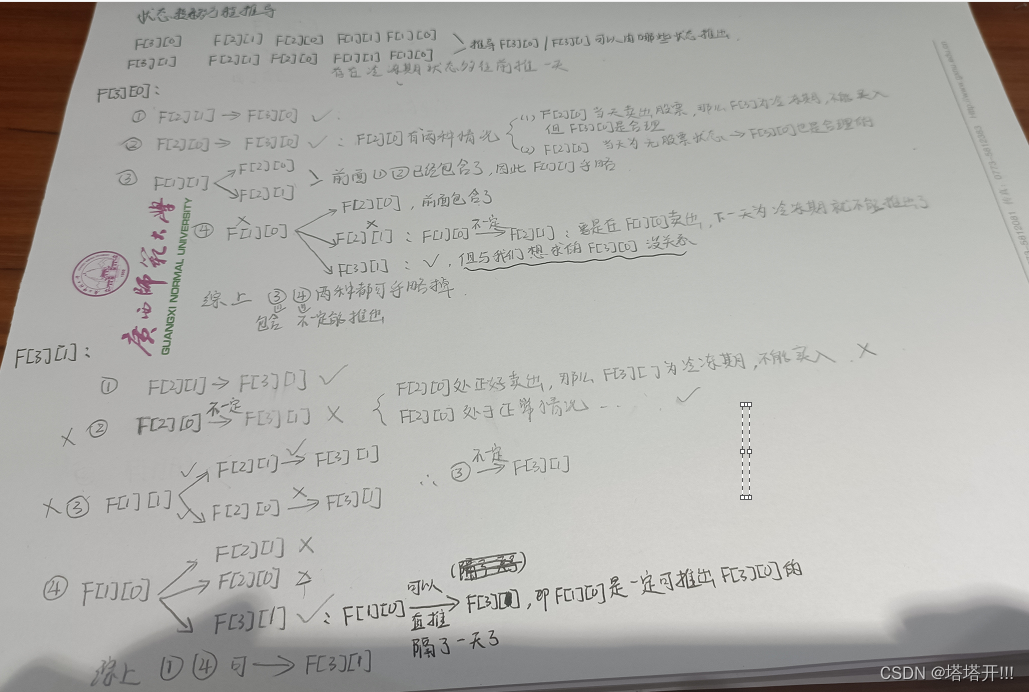 状态转移方程推导
F[3][0] F[2][1] F[2][0] F[1][1] F[1][0]
F[3][1] F[2][1] F[2][0] F[1][1] F[1][0]
推导F[3][0] / F[3][1] 可以由哪些状态推出.
存在冷冻期状态多往前推一天
F[3][0]:
① F[2][1] → F[3][0] ✓.
② F[2][0] → F[3][0] ✓ : F[2][0]有两种情况
(1) F[2][0] 当天卖出股票, 那么F[3]为冷冻期,不能买入
但 F[3][0]是合理
(2) F[2][0] 当天为无股票状态, → F[3][0]也是合理的
③ F[1][1] F[2][0]
F[2][1]
前面①②已经包含了,因此F[1][1]忽略
④ × F[1][0]
F[2][0], 前面包含了
× F[2][1] : F[1][0] 不一定→ F[2][1] : 要是在F[1][0]卖出, 下一天为冷冻期就不能推出了
F[3][1] : ✓, 但与我们想求的F[3][0] 没关系
综上 ③④两种都可忽略掉.
包含 不一定能推出
廣西師範大學
GUANGXI NORMAL UNIVERSITY
F[3][1]:
① F[2][1] → F[3][1] ✓
× ② F[2][0] 不一定→ F[3][1] ×
F[2][0]处正好卖出, 那么F[3][]为冷冻期,不能买入. ×
F[2][0] 处于正常情况 ... ✓
× ③ F[1][1]
✓ F[2][1] ✓→ F[3][1]
✓ F[2][0] ×→ F[3][1]
∴ ③ 不一定→ F[3][1]
④ F[1][0]
F[2][1] ×
F[2][0] ×
F[3][1] ✓ : F[1][0] 可以直推→ F[3][], 即F[1][0]是一定可推出F[3][0]的
隔了一天了
综上 ①④ 可 → F[3][1]
CSDN @塔塔开!!!